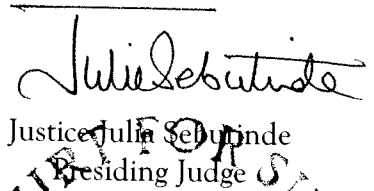 Julia Sebutinde
Justice Julia Sebutinde
Presiding Judge
RT FOR S